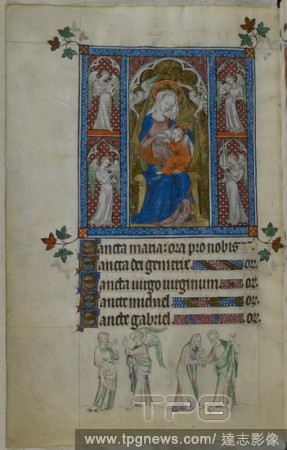 Sancta maria: ora pro nobis
Sancta dei genitrix or.
Sancta uirgo uirginum or.
Sancte michael or.
Sancte gabriel or.
TPG
www.tpgnews.com/達志影像